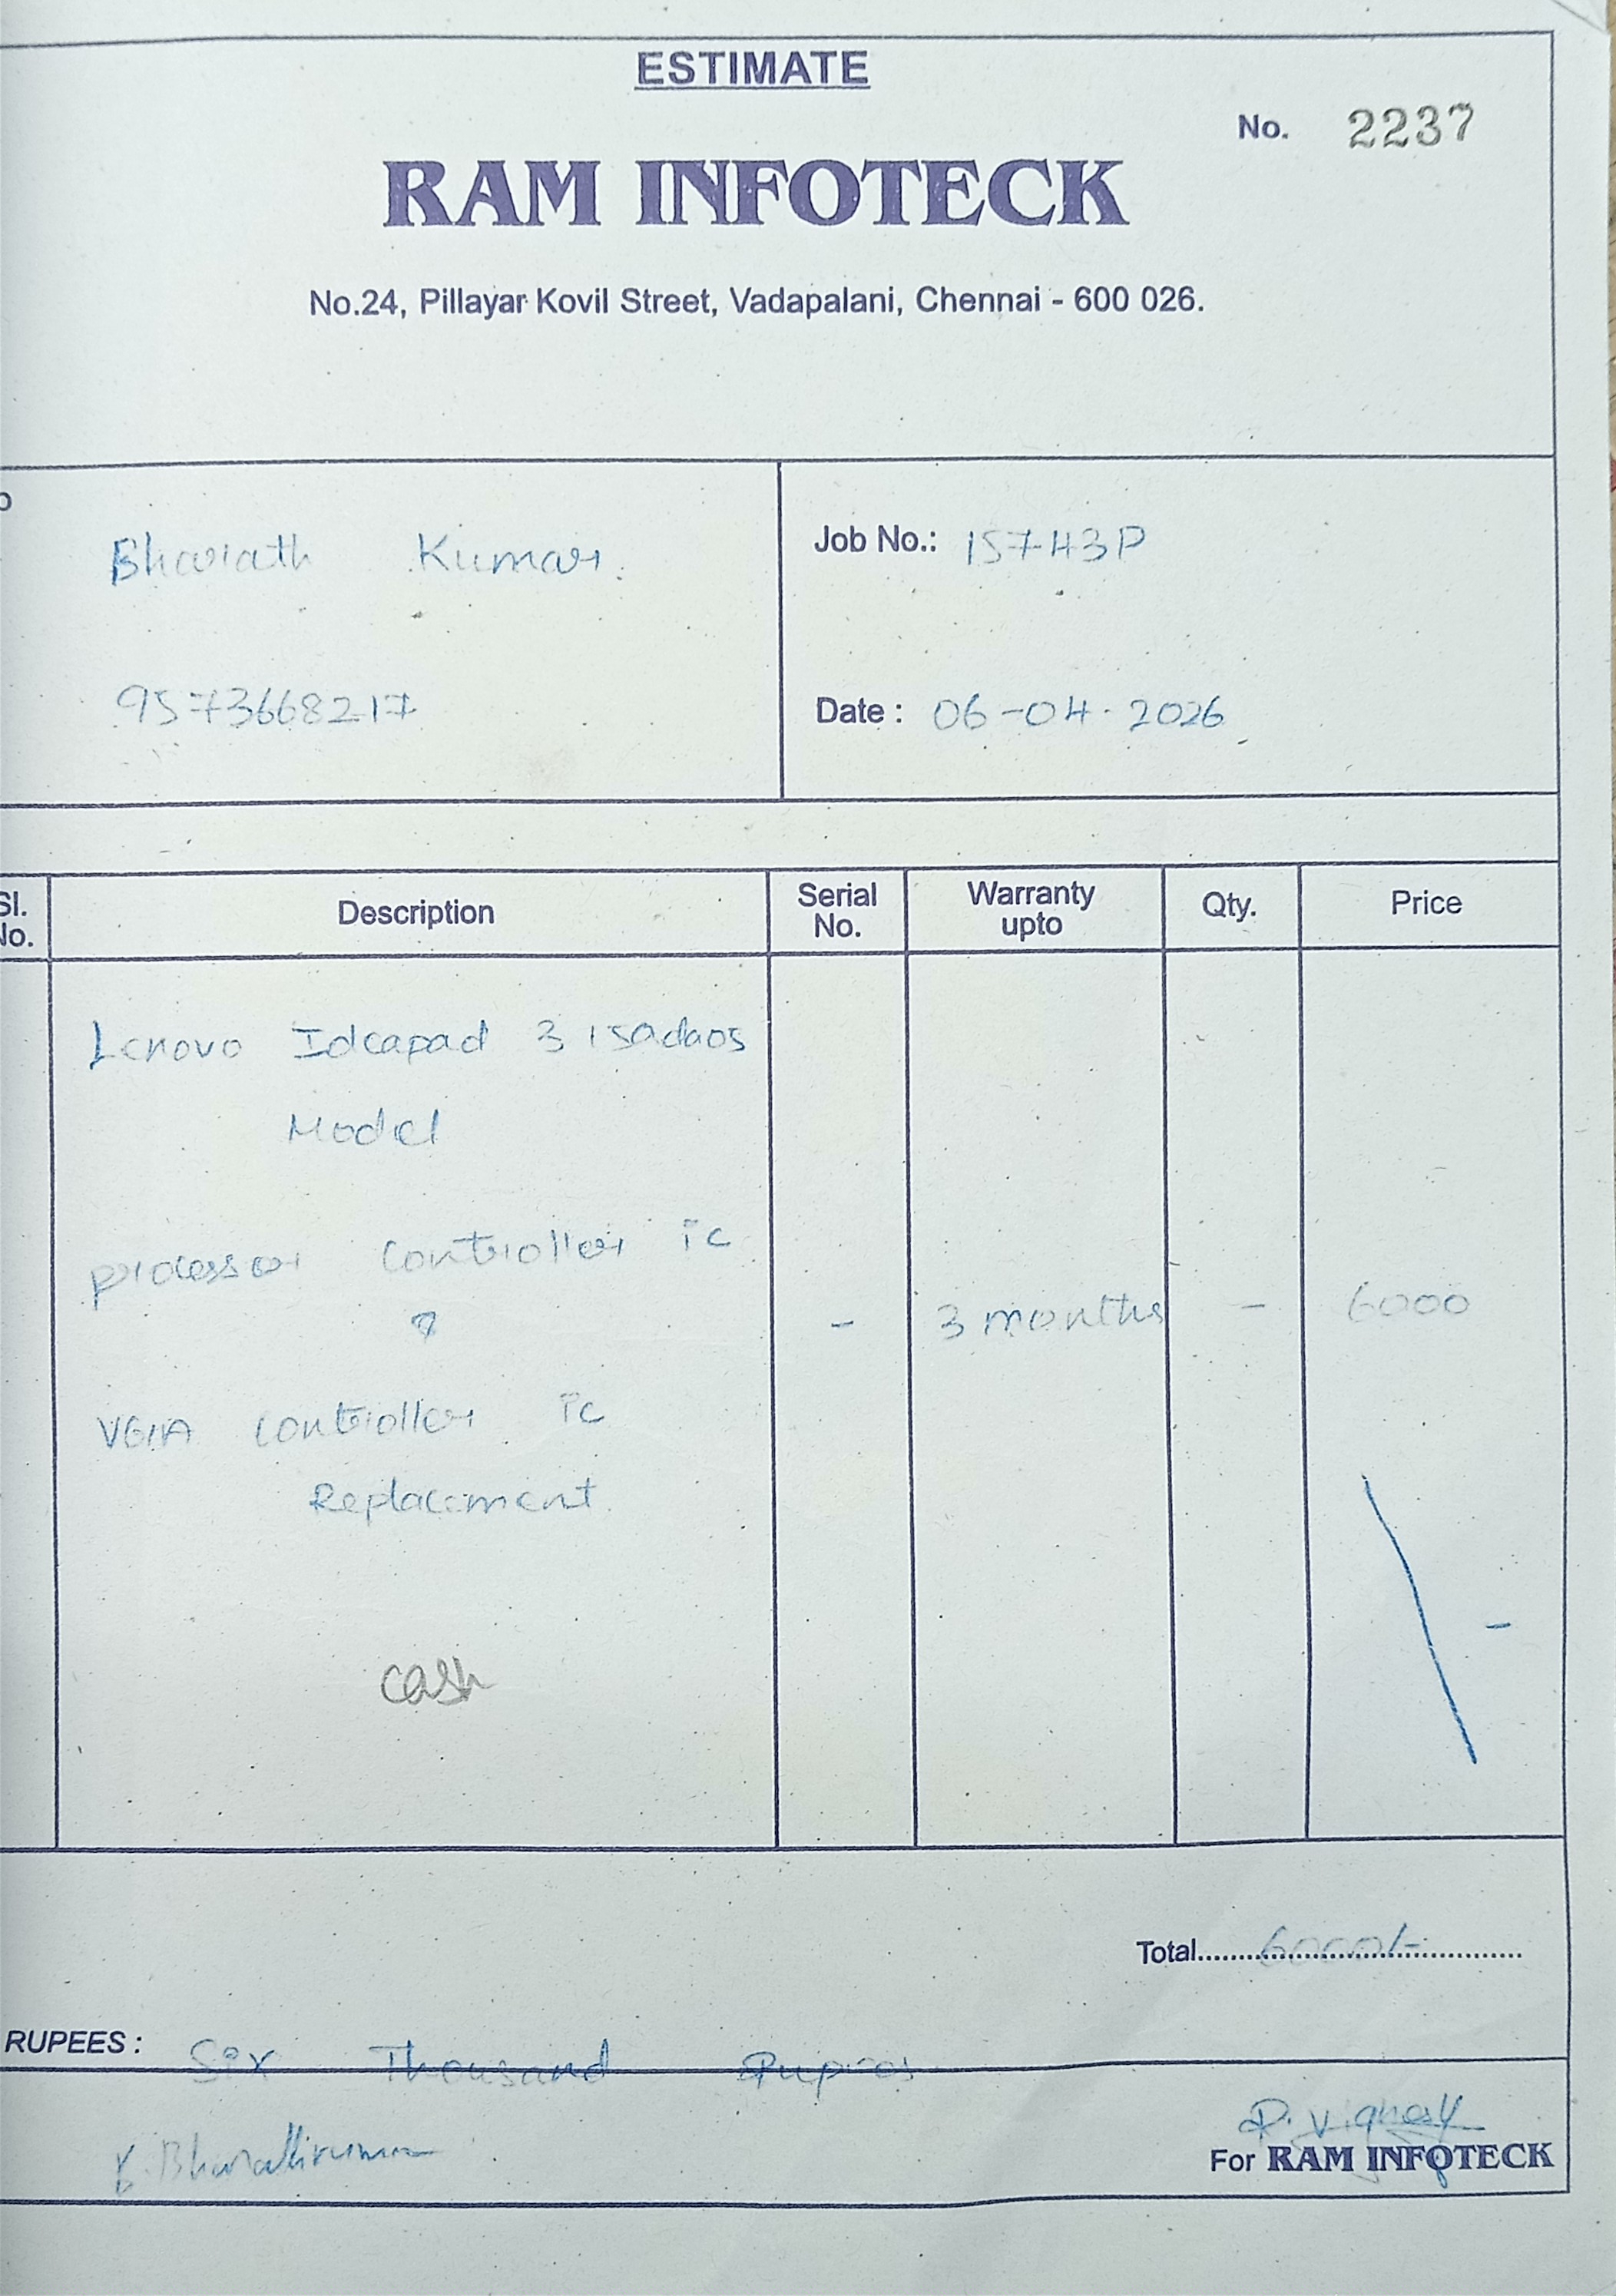 ESTIMATE
No. 2237
RAM INFOTECK
No.24, Pillayar Kovil Street, Vadapalani, Chennai - 600 026.
Bharath Kumar.
Job No.: 15743P
9573668217
Date : 06-04-2026
Sl. No. Description Serial No. Warranty upto Qty. Price
Lenovo Ideapad 3
Model
processor controller ic
& - 3 months - 6000
VGA controller ic
Replacement.
cash
Total 6000/-
RUPEES : Six Thousand
R. Vignesh
For RAM INFOTECK